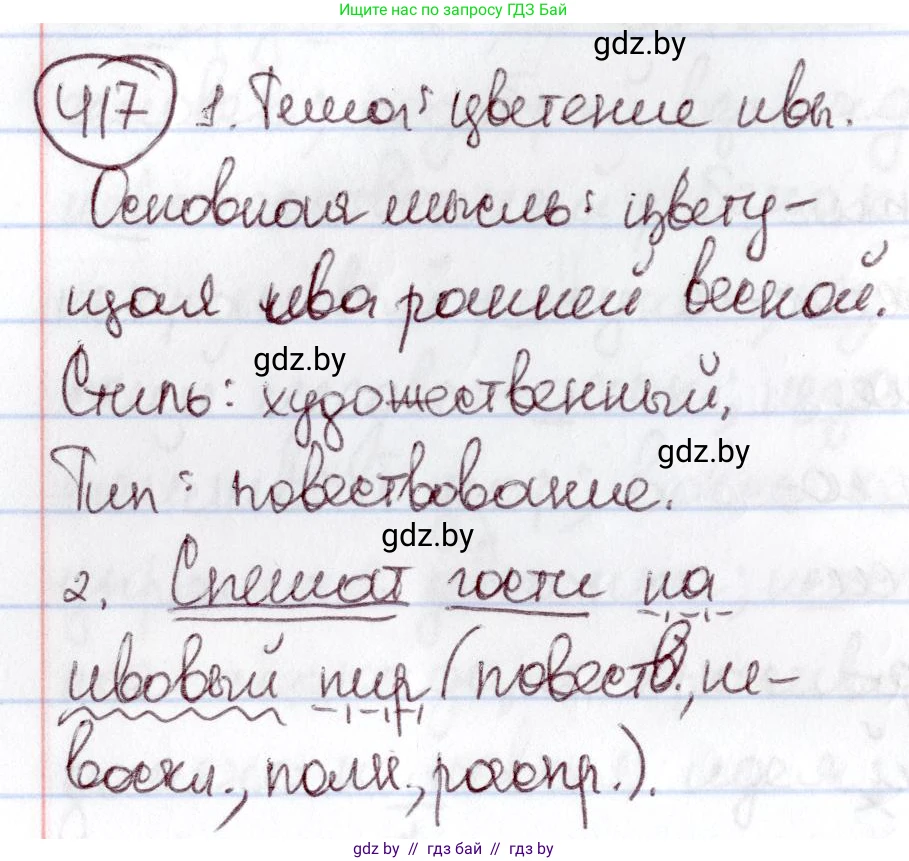 Ищите нас по запросу ГДЗ Бай
gdz.by
417 1. Тема: цветение ивы.
Основная мысль: цвету-
щая ива ранней весной.
gdz.by
Стиль: художественный,
gdz.by
Тип: повествование.
gdz.by
2. Спешат гости на
ивовый пир (повеств., не-
воскл., полн., распр.).
gdz.by // гдз бай // гдз by